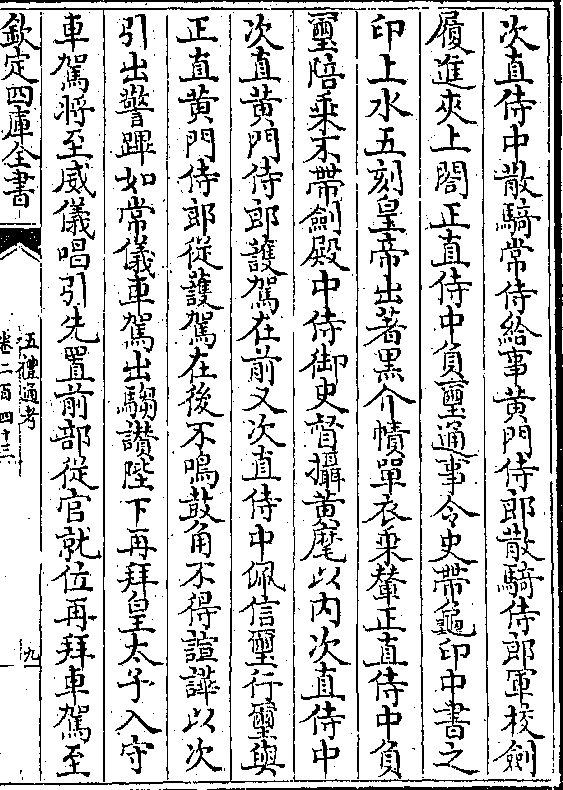 次直侍中散騎常侍給事黄門侍郎散騎侍郎軍校劍
履進夾上閤正直侍中負璽通事令史帶龜印中書之
印上水五刻皇帝出著黒介幘單衣乗輦正直侍中負
璽陪乗不帶劍殿中侍御史督攝黄麾以内次直侍中
次直黄門侍郎護駕在前又次直侍中佩信璽行璽與
正直黄門侍郎從護駕在後不鳴鼓角不得諠譁以次
引出警蹕如常儀車駕出騶讃陛下再拜皇太子入守
車駕將至威儀唱引先置前部從官就位再拜車駕至
欽定四庫全書
五禮通考
卷二百四十三
九